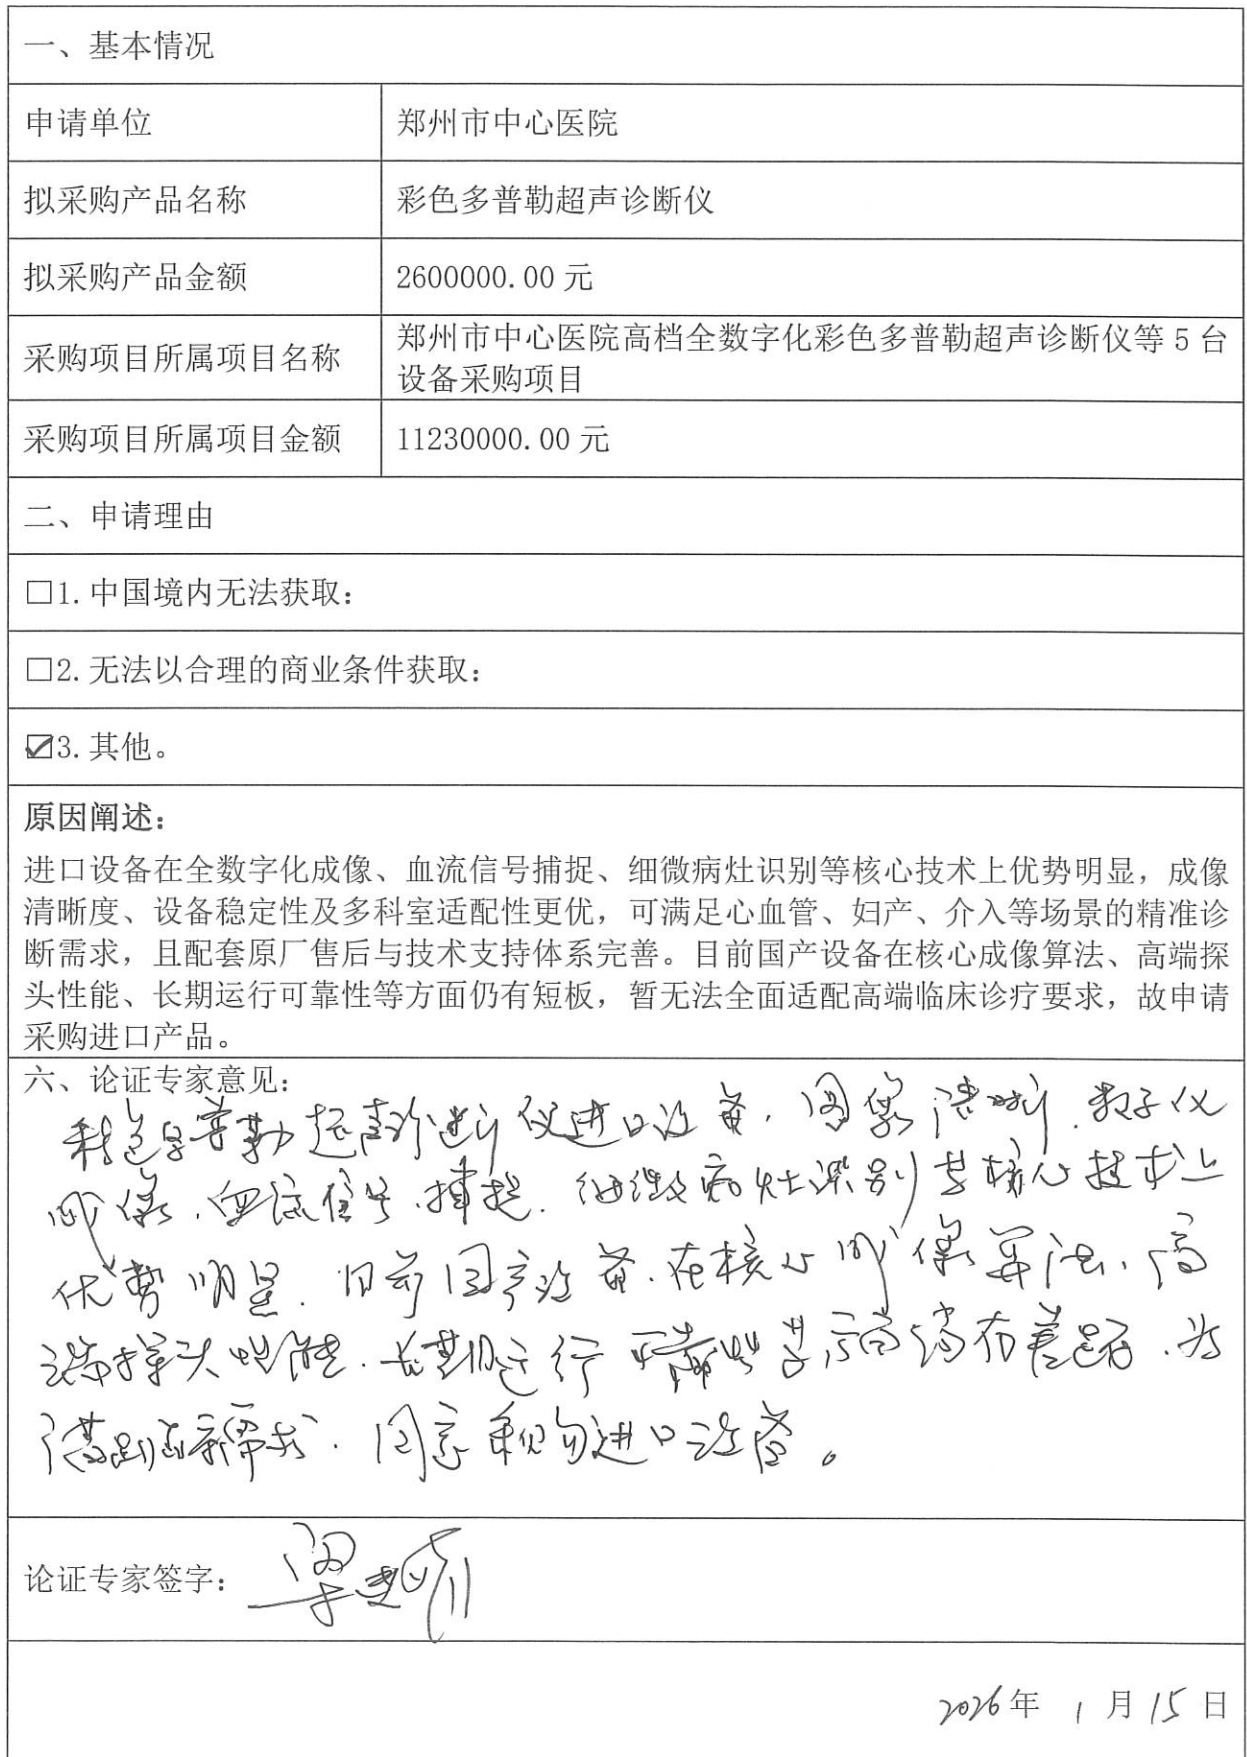 一、基本情况
申请单位
郑州市中心医院
拟采购产品名称
彩色多普勒超声诊断仪
拟采购产品金额
2600000.00 元
采购项目所属项目名称
郑州市中心医院高档全数字化彩色多普勒超声诊断仪等 5 台
设备采购项目
采购项目所属项目金额
11230000.00 元
二、申请理由
□1. 中国境内无法获取：
□2. 无法以合理的商业条件获取：
☑3. 其他。
原因阐述：
进口设备在全数字化成像、血流信号捕捉、细微病灶识别等核心技术上优势明显，成像
清晰度、设备稳定性及多科室适配性更优，可满足心血管、妇产、介入等场景的精准诊
断需求，且配套原厂售后与技术支持体系完善。目前国产设备在核心成像算法、高端探
头性能、长期运行可靠性等方面仍有短板，暂无法全面适配高端临床诊疗要求，故申请
采购进口产品。
六、论证专家意见：
普勒超声诊断仪进口设备，图像清晰，
成像、血流信号、捕捉、细微病灶识别等核心技术上
优势明显，目前国产设备、在核心成像算法、高
端探头性能、长期运行可靠性等方面尚有差距，为
满足临床需求，同意采购进口设备。
论证专家签字：
2026年 1 月 15 日